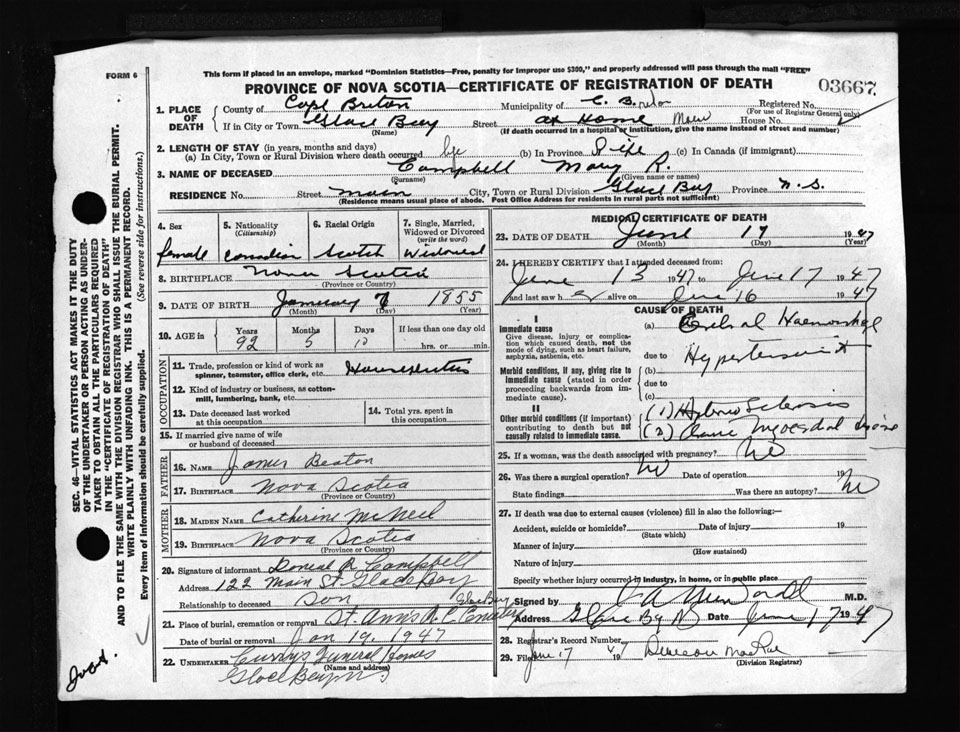 FORM 6
This form if placed in an envelope, marked "Dominion Statistics—Free, penalty for improper use $300," and properly addressed will pass through the mail "FREE"
PROVINCE OF NOVA SCOTIA—CERTIFICATE OF REGISTRATION OF DEATH
03667
1. PLACE OF DEATH
County of Cape Breton Municipality of C. B. Registered No.
(For use of Registrar General only)
If in City or Town Glace Bay Street at Home Main House No.
(Name) (If death occurred in a hospital or institution, give the name instead of street and number)
2. LENGTH OF STAY (in years, months and days)
(a) In City, Town or Rural Division where death occurred life (b) In Province life (c) In Canada (if immigrant)
3. NAME OF DECEASED Campbell Mary R.
(Surname) (Given name or names)
RESIDENCE No. Street main City, Town or Rural Division Glace Bay Province N. S.
(Residence means usual place of abode. Post Office Address for residents in rural parts not sufficient)
4. Sex
female
5. Nationality
(Citizenship)
Canadian
6. Racial Origin
Scotch
7. Single, Married, Widowed or Divorced
(write the word)
Widowed
8. BIRTHPLACE Nova Scotia
(Province or Country)
9. DATE OF BIRTH January 7 1855
(Month) (Day) (Year)
10. AGE
Years Months Days If less than one day old
92 5 10 hrs. or min.
OCCUPATION
11. Trade, profession or kind of work as spinner, teamster, office clerk, etc.
12. Kind of industry or business, as cotton-mill, lumbering, bank, etc.
13. Date deceased last worked at this occupation
14. Total yrs. spent in this occupation
15. If married give name of wife or husband of deceased
FATHER
16. NAME James Beaton
17. BIRTHPLACE Nova Scotia
(Province or Country)
MOTHER
18. MAIDEN NAME Catherine McNeil
19. BIRTHPLACE Nova Scotia
(Province or Country)
20. Signature of informant R Campbell
Address 122 Main St Glace Bay
Relationship to deceased Son
Glace Bay
21. Place of burial, cremation or removal St. Ann's R. C. Cemetery
Date of burial or removal Jan 19, 1947
22. UNDERTAKER Curry's Funeral Homes
(Name and address)
Glace Bay NS
MEDICAL CERTIFICATE OF DEATH
23. DATE OF DEATH June 17 1947
(Month) (Day) (Year)
24. I HEREBY CERTIFY that I attended deceased from:
June 13 1947 to June 17 1947
and last saw her alive on June 16 1947
CAUSE OF DEATH
I
Immediate cause
Give disease, injury or complication which caused death, not the mode of dying, such as heart failure, asphyxia, asthenia, etc.
(a) Cerebral Haemorrhage
due to
Morbid conditions, if any, giving rise to immediate cause (stated in order proceeding backwards from immediate cause).
(b) Hypertension
due to
(c)
II
Other morbid conditions (if important) contributing to death but not causally related to immediate cause.
(1)
(2) Myocardial disease
25. If a woman, was the death associated with pregnancy? No
26. Was there a surgical operation? No Date of operation 19
State findings Was there an autopsy? No
27. If death was due to external causes (violence) fill in also the following:—
Accident, suicide or homicide? Date of injury 19
(State which)
Manner of injury
(How sustained)
Nature of injury
Specify whether injury occurred in industry, in home, or in public place
Signed by M.D.
Address Glace Bay Date June 17 1947
28. Registrar's Record Number
29. Filed June 17 1947
(Division Registrar)
SEC. 46—VITAL STATISTICS ACT MAKES IT THE DUTY OF THE UNDERTAKER OR PERSON ACTING AS UNDERTAKER TO OBTAIN ALL THE PARTICULARS REQUIRED IN THE "CERTIFICATE OF REGISTRATION OF DEATH"
AND TO FILE THE SAME WITH THE DIVISION REGISTRAR WHO SHALL ISSUE THE BURIAL PERMIT.
WRITE PLAINLY WITH UNFADING INK. THIS IS A PERMANENT RECORD.
Every item of information should be carefully supplied. (See reverse side for instructions.)